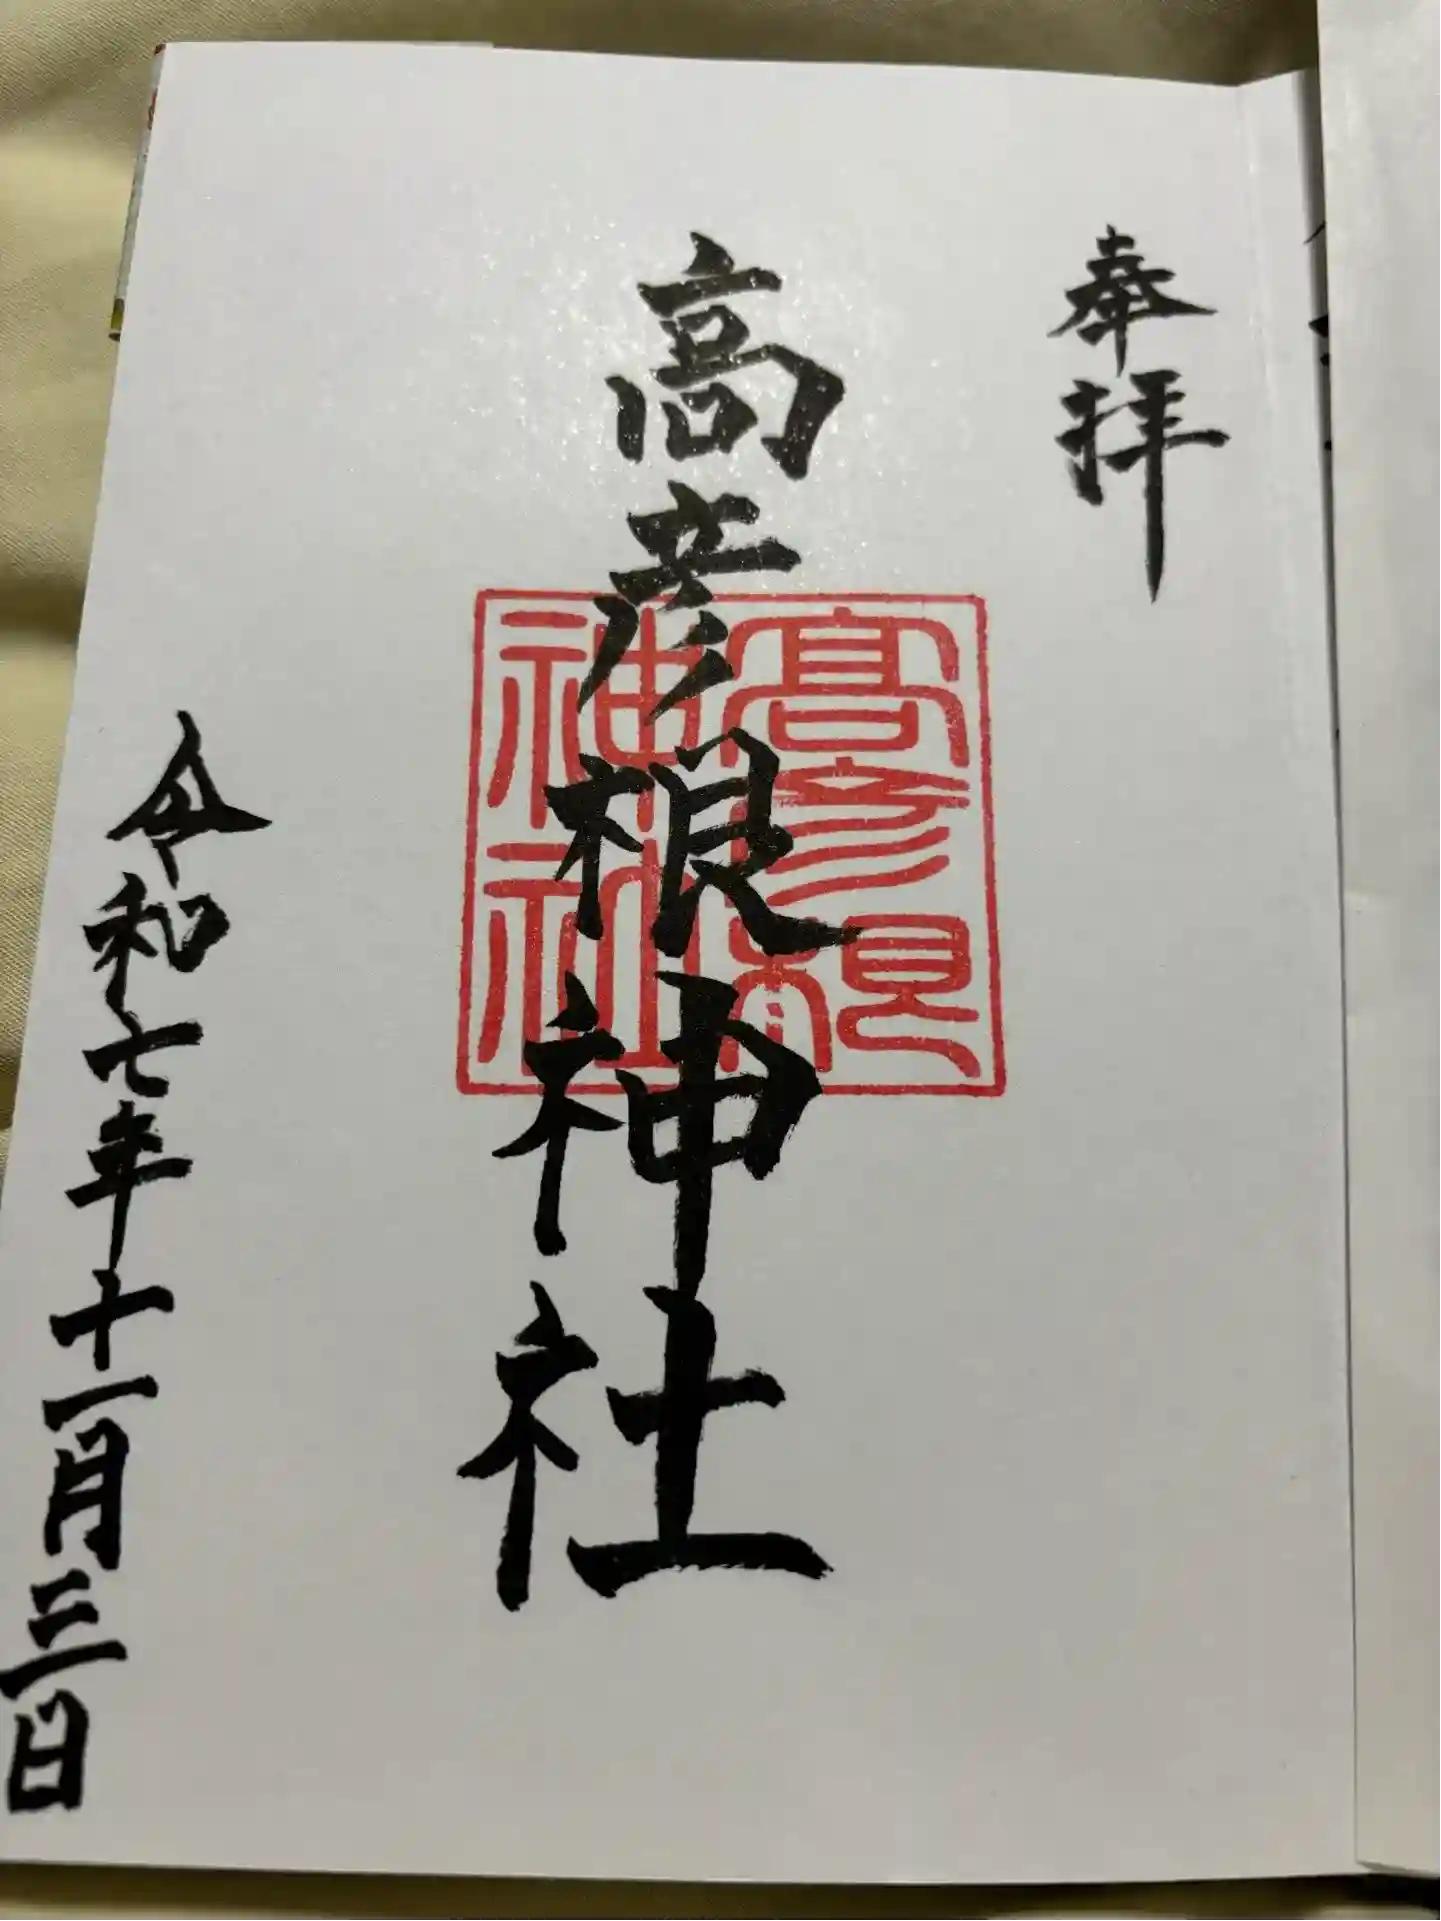 奉拝
高彦根神社
高彦根神社
令和七年十一月三日